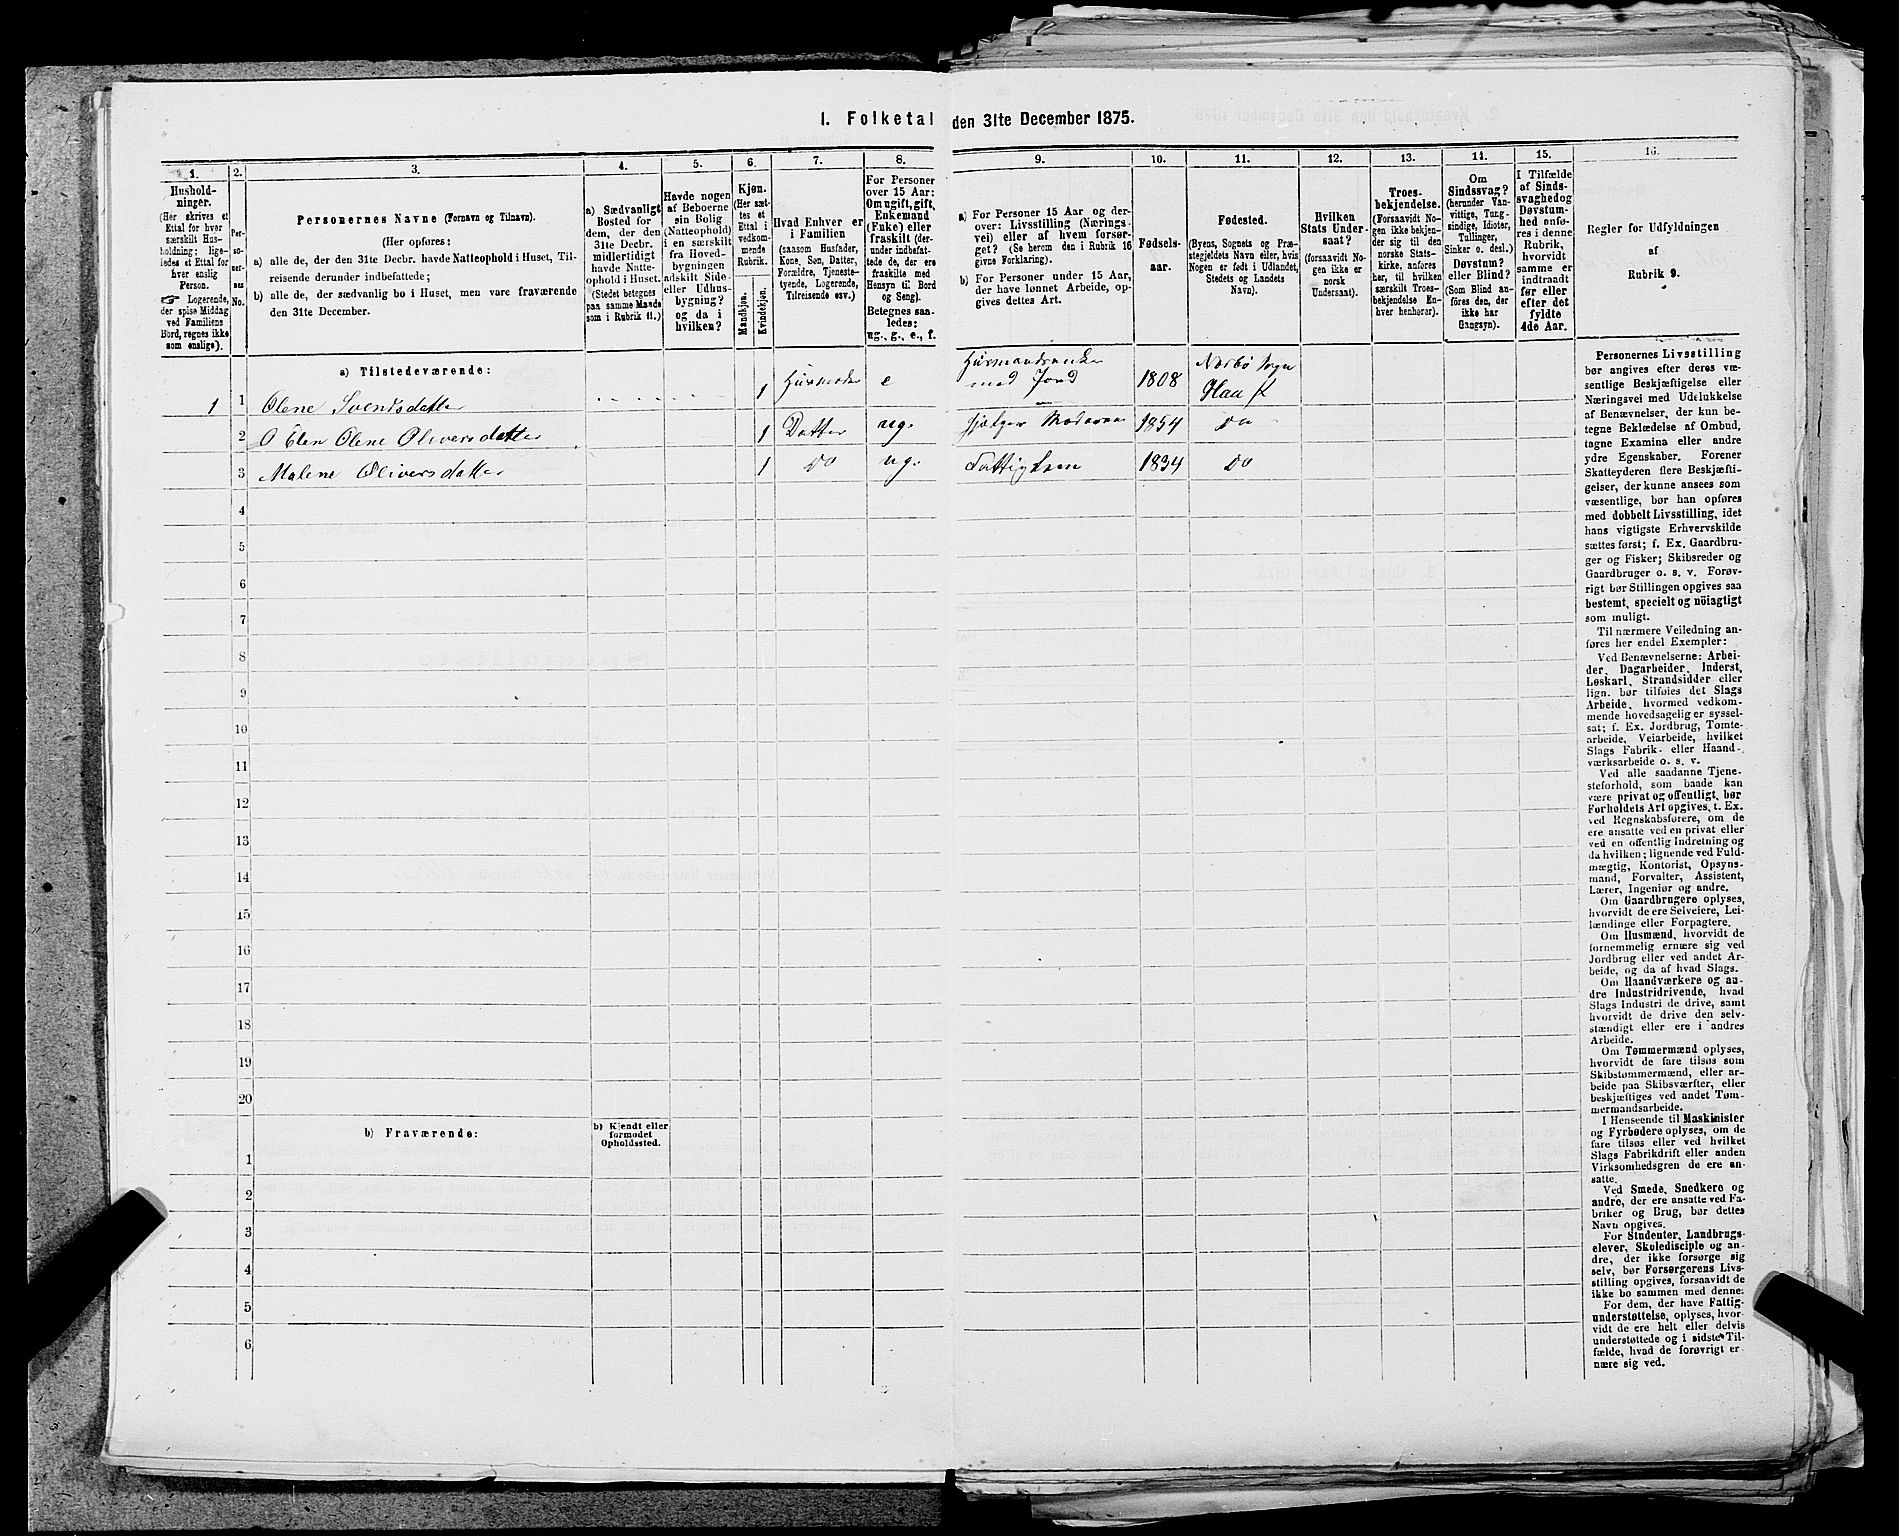 1. Folketal den 31te December 1875.
1.
Hushold-
ninger.
(Her skrives et
Ettal for hver
særskilt Hus-
holdning; lige-
ledes et Ettal for
hver enslig
Person.
☞ Logerende,
der spise Middag
ved Familiens
Bord, regnes ikke
som enslige).
2.
Per-
so-
ner-
nes
No.
3.
Personernes Navne (Fornavn og Tilnavn).
(Her opføres:
a) alle de, der den 31te Decbr. havde Natteophold i Huset, Til-
reisende derunder indbefattede;
b) alle de, der sædvanlig bo i Huset, men vare fraværende
den 31te December.
4.
a) Sædvanligt
Bosted for
dem, der den
31te Decbr.
midlertidigt
havde Natte-
ophold i Huset.
(Stedet betegnes
paa samme Maade
som i Rubrik 11.)
5.
Havde nogen
af Beboerne
sin Bolig
(Natteophold)
i en særskilt
fra Hoved-
bygningen
adskilt Side-
eller Udhus-
bygning?
og da i
hvilken?
6.
Kjøn.
(Her sæt-
tes et
Ettal i
vedkom-
mende
Rubrik.
Mandkjøn.
Kvindekjøn.
7.
Hvad Enhver er
i Familien
(saasom Husfader,
Kone, Søn, Datter,
Forældre, Tjeneste-
tyende, Logerende,
Tilreisende osv.)
8.
For Personer
over 15 Aar:
Om ugift, gift,
Enkemand
(Enke) eller
fraskilt (der-
under indbefat-
tede de, der ere
fraskilte med
Hensyn til Bord
og Seng).
Betegnes saa-
ledes:
ug., g., e., f.
9.
a) For Personer 15 Aar og der-
over: Livsstilling (Nærings-
vei) eller af hvem forsør-
get? (Se herom den i Rubrik 16
givne Forklaring).
b) For Personer under 15 Aar,
der have lønnet Arbeide, op-
gives dettes Art.
10.
Fødsels-
aar.
11.
Fødested.
(Byens, Sognets og Præ-
stegjeldets Navn eller, hvis
Nogen er født i Udlandet,
Stedets og Landets
Navn).
12.
Hvilken
Stats Under-
saat?
(forsaavidt No-
gen ikke er
norsk
Undersaat).
13.
Troes-
bekjendelse.
(Forsaavidt No-
gen ikke bekjen-
der sig til den
norske Stats-
kirke, anføres
her, til hvilken
særskilt Troes-
bekjendelse En-
hver henhører).
14.
Om
Sindssvag?
(herunder Van-
vittige, Tung-
sindige, Idioter,
Tullinger,
Sinker o. desl.)
Døvstum?
eller Blind?
(Som Blind an-
føres den, der
ikke har
Gangsyn).
15.
I Tilfælde
af Sinds-
svaghed og
Døvstum-
hed onfø-
res i denne
Rubrik,
hvorvidt
samme er
indtraadt
før eller
efter det
fyldte
4de Aar.
16.
Regler for Udfyldningen
af
Rubrik 9.
a) Tilstedeværende:
1 1 Olene Svendsdatter 1 Husmoder e Husmandsenke med Jord 1808 Nærbø Sogn Haa
2 Elen Olene Oliversdatter 1 Datter ug. hjælper Moderen 1854 Do
3 Malene Oliversdatter 1 Do ug. Fattiglem 1834 Do
4
5
6
7
8
9
10
11
12
13
14
15
16
17
18
19
20
b) Fraværende:
b) Kjendt eller
formodet
Opholdssted.
1
2
3
4
5
6
Personernes Livsstilling
bør angives efter deres væ-
sentlige Beskjæftigelse eller
Næringsvei med Udelukkelse
af Benævnelser, der kun be-
tegne Beklædelse af Ombud,
tagne Examina eller andre
ydre Egenskaber. Forener
Skatteyderen flere Beskjæfti-
gelser, der kunne ansees som
væsentlige, bør han opføres
med dobbelt Livsstilling, idet
hans vigtigste Erhvervskilde
sættes først; f. Ex. Gaardbru-
ger og Fisker; Skibsreder og
Gaardbruger o. s. v. Forøv-
rigt bør Stillingen opgives saa
bestemt, specielt og nöiagtigt
som muligt.
Til nærmere Veiledning an-
føres her endel Exempler:
Ved Benævnelserne: Arbei-
der, Dagarbeider, Inderst,
Løskarl, Strandsidder eller
lign. bør tilføies det Slags
Arbeide, hvormed vedkom-
mende hovedsagelig er syssel-
sat; f. Ex. Jordbrug, Tomte-
arbeide, Veiarbeide, hvilket
Slags Fabrik- eller Haand-
værksarbeide o. s. v.
Ved alle saadanne Tjene-
steforhold, som baade kan
være privat og offentligt, bør
Forholdets Art opgives, t. Ex.
ved Regnskabsførere, om de
ere ansatte ved en privat eller
ved en offentlig Indretning og
da hvilken; lignende ved Fuld-
mægtig, Kontorist, Opsyns-
mand, Forvalter, Assistent,
Lærer, Ingeniør og andre.
Om Gaardbrugere oplyses,
hvorvidt de ere Selveiere, Lei-
lændinge eller Forpagtere.
Om Husmænd, hvorvidt de
fornemmelig ernære sig ved
Jordbrug eller ved andet Ar-
beide, og da af hvad Slags.
Om Haandværkere og an-
dre Industridrivende, hvad
Slags Industri de drive, samt
hvorvidt de drive den selv-
stændigt eller ere i andres
Arbeide.
Om Tømmermænd oplyses,
hvorvidt de fare tilsøs som
Skibstømmermænd, eller ar-
beide paa Skibsværfter, eller
beskjæftiges ved andet Tøm-
mermandsarbeide.
I Henseende til Maskinister
og Fyrbødere oplyses, om de
fare tilsøs eller ved hvilket
Slags Fabrikdrift eller anden
Virksomhedsgren de ere an-
satte.
Ved Smede, Snedkere og
andre, der ere ansatte ved Fa-
briker og Brug, bør dettes
Navn opgives.
For Studenter, Landbrugs-
elever, Skoledisciple og an-
dre, der ikke forsørge sig
selv, bør Forsørgerens Livs-
stilling opgives, forsaavidt de
ikke bo sammen med denne.
For dem, der have Fattig-
understøttelse, oplyses, hvor-
vidt de ere helt eller delvis
understøttede og i sidste Til-
fælde, hvad de forøvrigt er-
nære sig ved.